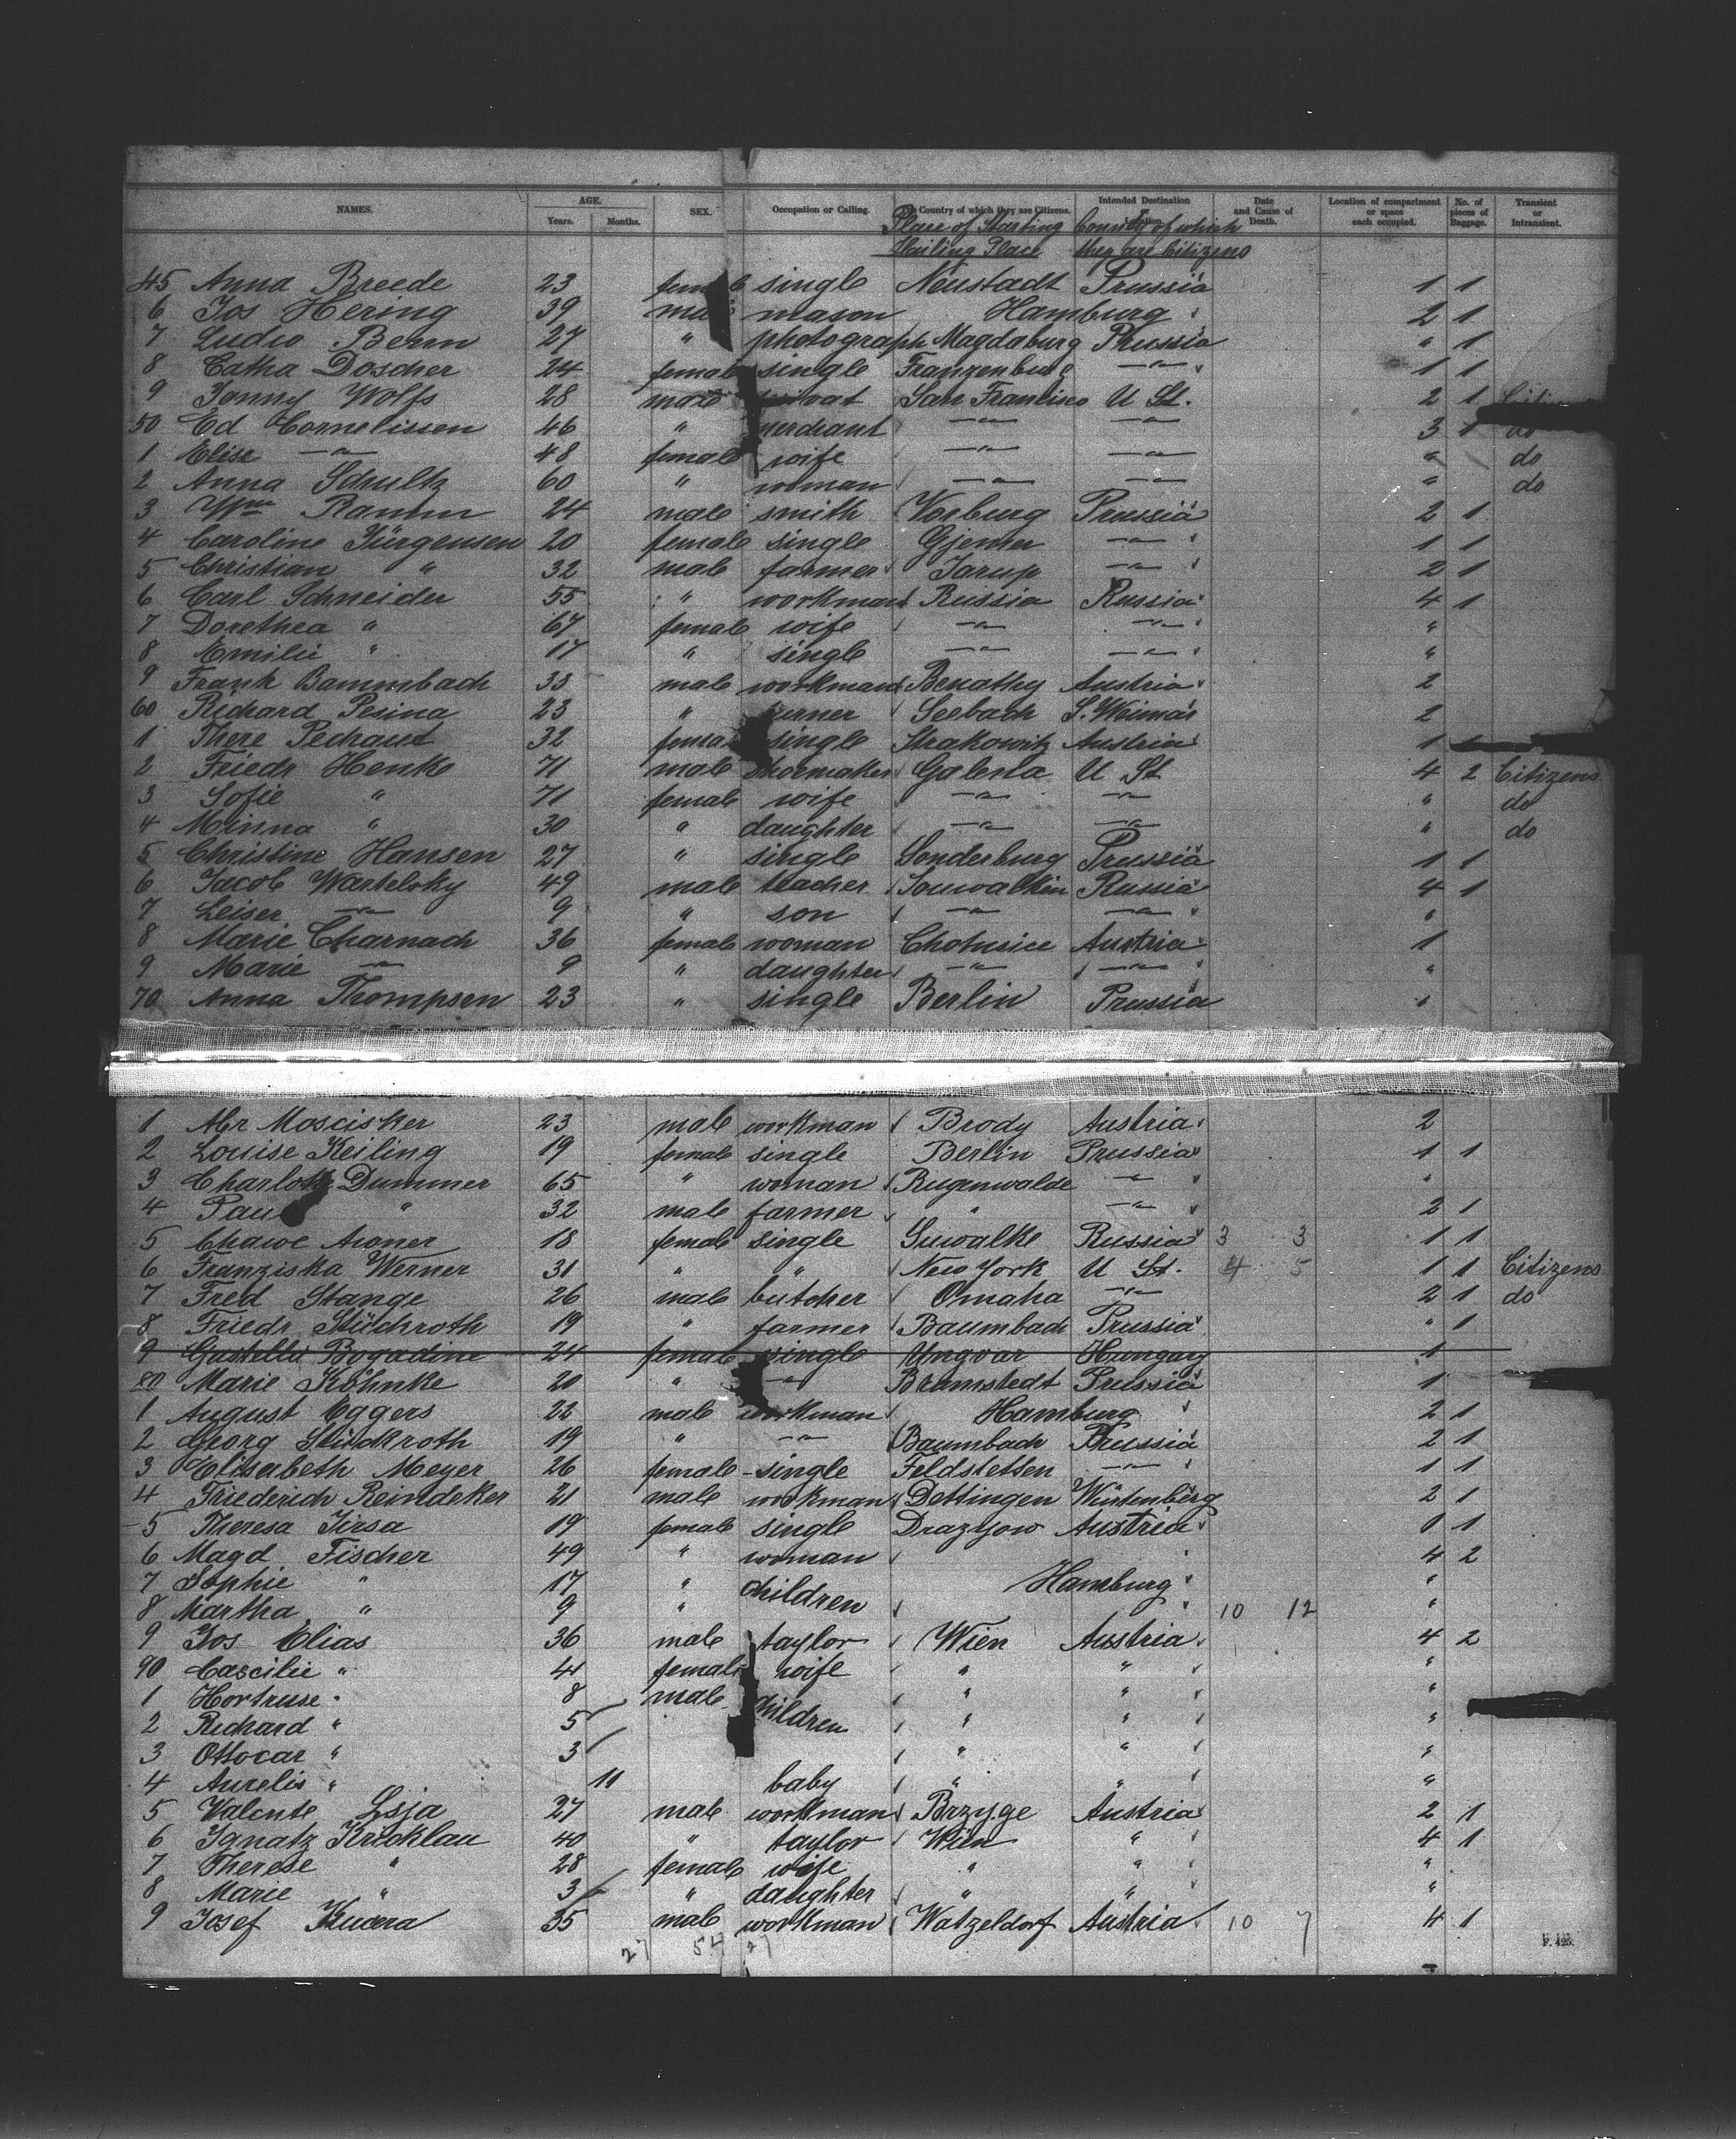 NAMES. AGE. Years. Months. SEX. Occupation or Calling. Country of which they are Citizens. Intended Destination or Location. Date and Cause of Death. Location of compartment or space each occupied. No. of pieces of Baggage. Transient or Intransient.
Place of Starting Country of which
Hailing Place they are Citizens
45 Anna Breede 23 female single Neustadt Prussia 1 1
6 Jos Hering 39 male mason Hamburg 2 1
7 Ludw Benn 27 " photograph Magdaburg Prussia " 1
8 Catha Doscher 24 female single Franzenburg —"— 1 1
9 Jonny Wolfs 28 male San Francisco U St. 2 1
50 Ed Cornelissen 46 " merchant —"— —"— 3 1 do
1 Elise —"— 48 female wife —"— —"— " do
2 Anna Schultz 60 " woman —"— —"— " do
3 Wm Ramm 24 male smith Vorburg Prussia 2 1
4 Caroline Jürgensen 20 female single Gjenner —"— 1 1
5 Christian " 32 male farmer Jarup —"— 2 1
6 Carl Schneider 55 " workman Russia Russia 4 1
7 Dorethea " 67 female wife —"— —"— "
8 Emilie " 17 " single —"— —"— "
9 Frank Bammbach 33 male workman Benathy Austria 2
60 Richard Pesina 23 " Seebach S. Weimar 2
1 There Pechaut 32 female single Strakowitz Austria 1
2 Friedr Henke 71 male shoemaker Galena U St 4 2 Citizens
3 Sofie " 71 female wife —"— —"— " do
4 Minna " 30 " daughter —"— —"— " do
5 Christine Hansen 27 " single Sonderburg Prussia 1 1
6 Jacob Wartelsky 49 male teacher Souwalkin Russia 4 1
7 Leiser —"— 9 " son —"— —"— "
8 Marie Charnach 36 female woman Chotusice Austria 1
9 Marie —"— 9 " daughter —"— —"— "
70 Anna Thompsen 23 " single Berlin Prussia "
1 Abr Moscisker 23 male workman Brody Austria 2
2 Louise Keiling 19 female single Berlin Prussia 1 1
3 Charlotte Dummer 65 " woman Rugenwalde —"— "
4 Paul " 32 male farmer " —"— 2 1
5 Chawe Aroner 18 female single Suwalke Russia 3 3 1 1
6 Franziska Werner 31 " " New York U St. 4 5 1 1 Citizens
7 Fred Stange 26 male butcher Omaha —"— 2 1 do
8 Friedr Stüchroth 19 " farmer Baumbach Prussia " 1
9 Gustella Bogadine 24 female single Ungvar Hungary 1
80 Marie Köhnke 20 " —"— Bramstedt Prussia 1
1 August Eggers 22 male workman Hamburg 2 1
2 Georg Stückroth 19 " —"— Baumbach Prussia 2 1
3 Elisabeth Meyer 26 female single Feldstetten —"— 1 1
4 Friederich Reindeker 21 male workman Dettingen Würtenberg 2 1
5 Theresa Jirsa 19 female single Drazyow Austria 1 1
6 Magd Fischer 49 " woman 4 2
7 Sophie " 17 " children Hamburg "
8 Martha " 9 " 10 12 "
9 Jos Elias 36 male taylor Wien Austria 4 2
90 Caecilie " 41 female wife " " "
1 Hortense " 8 male children " " "
2 Richard " 5 " " "
3 Ottocar " 3 " " "
4 Aurelis " 11 baby " " "
5 Valente Lsja 27 male workman Brzyge Austria 2 1
6 Ignatz Kricklau 40 " taylor Wien " 4 1
7 Therese " 28 female wife " " "
8 Marie " 3 " daughter " " "
9 Josef Kucera 35 male workman Watzeldorf Austria 10 7 4 1
27 54 27